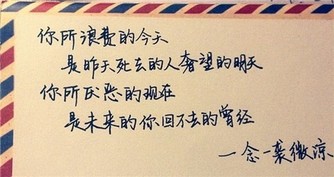 你所浪费的今天
是昨天死去的人奢望的明天
你所厌恶的现在
是未来的你回不去的曾经
一念一袭微凉